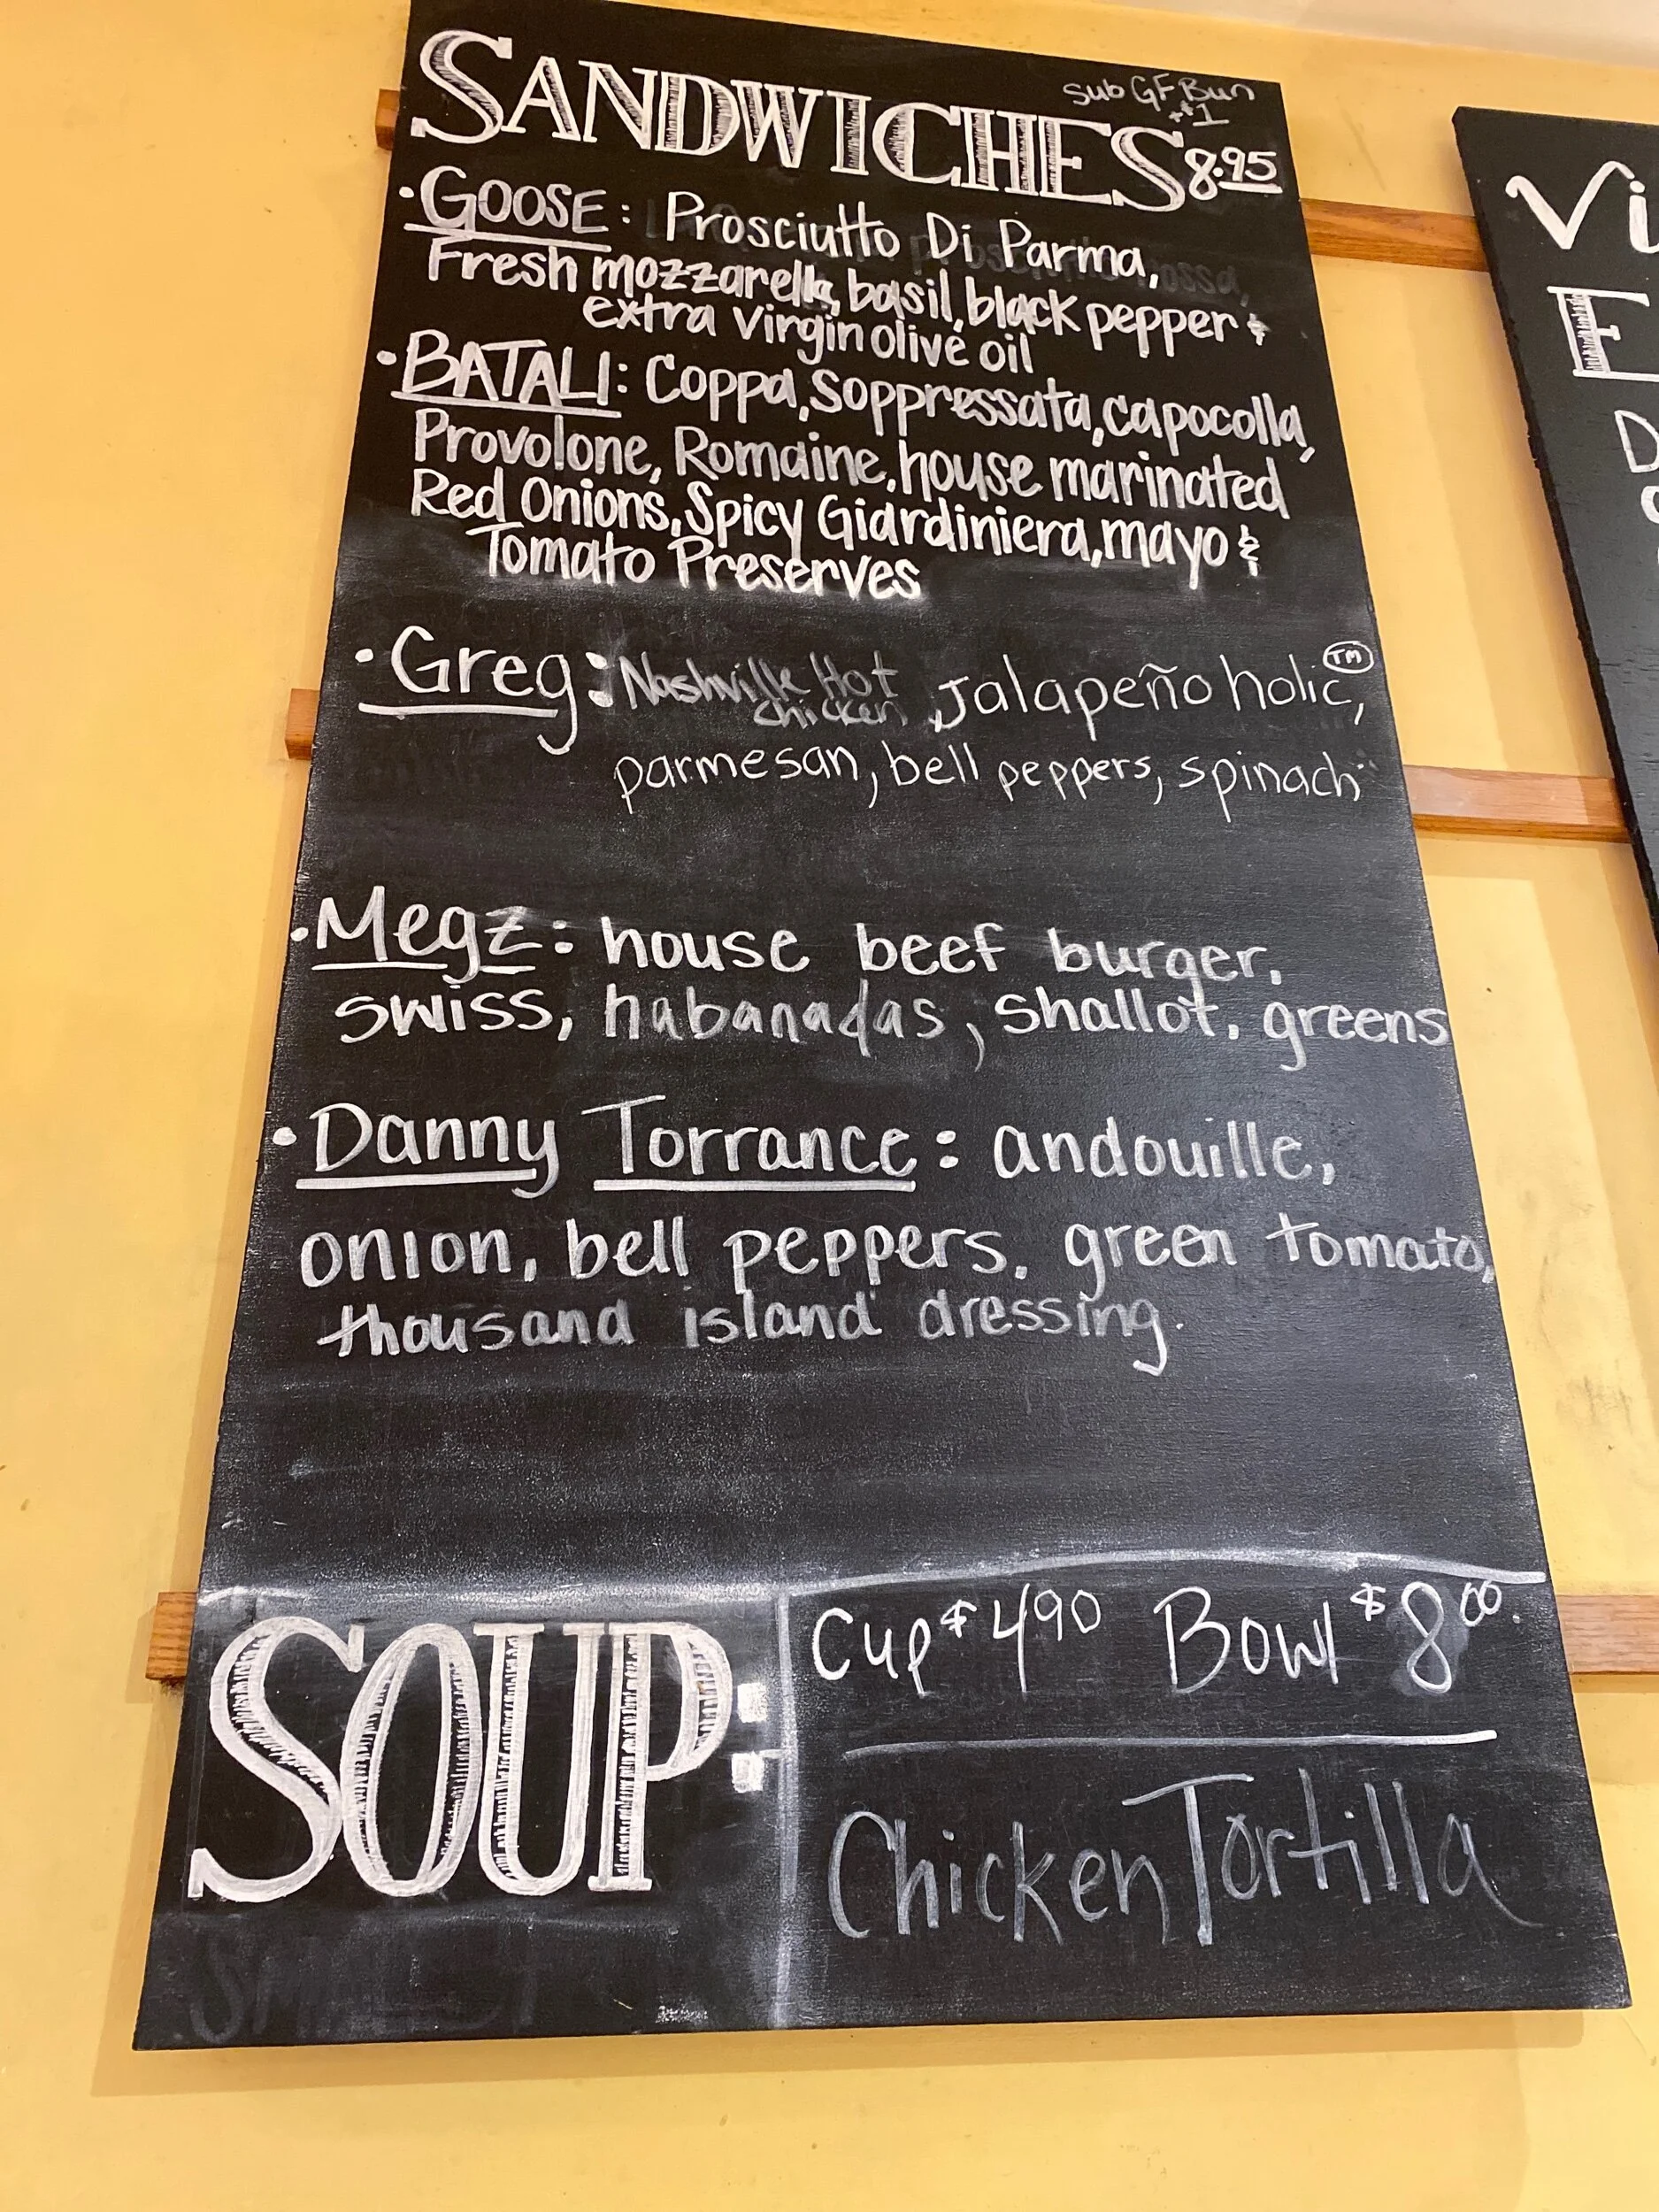 SANDWICHES 8.95
Sub GF Bun
+$1
• GOOSE: Prosciutto Di Parma,
Fresh mozzarella, basil, black pepper &
extra virgin olive oil
• BATALI: Coppa, Soppressata, capocolla,
Provolone, Romaine, house marinated
Red Onions, Spicy Giardiniera, mayo &
Tomato Preserves
• Greg: Nashville Hot chicken, Jalapeñoholic™,
parmesan, bell peppers, spinach
• Megz: house beef burger,
swiss, habanadas, shallot, greens
• Danny Torrance: andouille,
onion, bell peppers, green tomato,
thousand island dressing.
SOUP:
Cup $4.90 Bowl $8.00
Chicken Tortilla
Vi
E
D